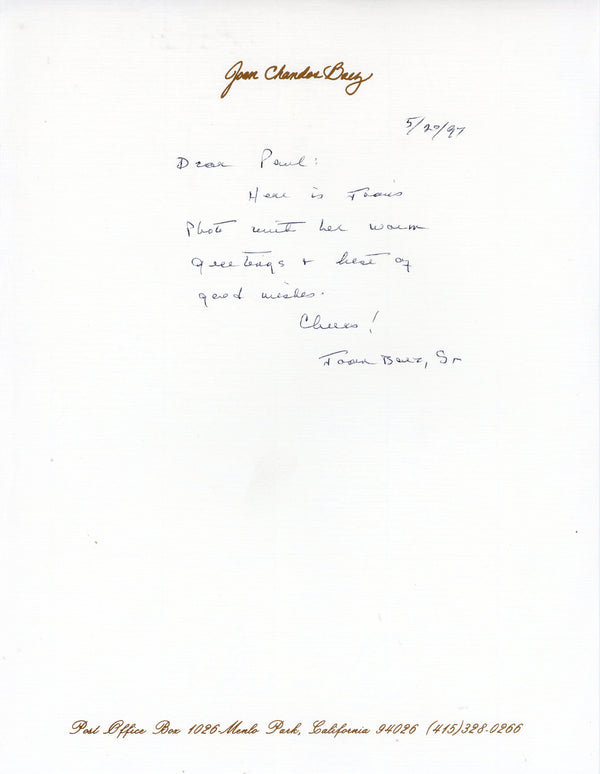 Joan Chandos Baez
5/20/97
Dear Paul:
Here is Joan's
Photo with her warm
greetings + best of
good wishes.
Cheers!
Joan Baez, Sr
Post Office Box 1026 Menlo Park, California 94026 (415)328-0266